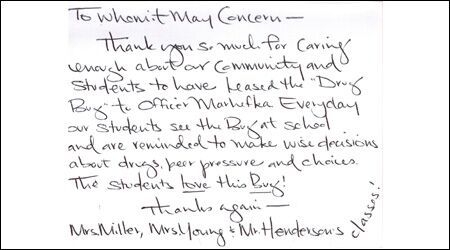 To Whom it May Concern —
Thank you so much for caring
enough about our community and
students to have leased the "Drug
Bug" to Officer Marhefka Everyday
our students see the Bug at school
and are reminded to make wise decisions
about drugs, peer pressure and choices.
The students love this Bug!
Thanks again —
Mrs. Miller, Mrs. Young & Mr. Henderson's
classes!